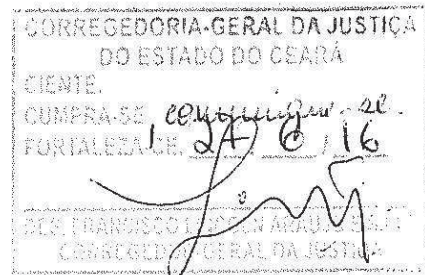 CORREGEDORIA-GERAL DA JUSTIÇA
DO ESTADO DO CEARÁ
CIENTE.
CUMPRA-SE, comunique-se.
FORTALEZA-CE, 27 / 6 / 16
DES. FRANCISCO LINCOLN ARAÚJO
CORREGEDOR-GERAL DA JUSTIÇA